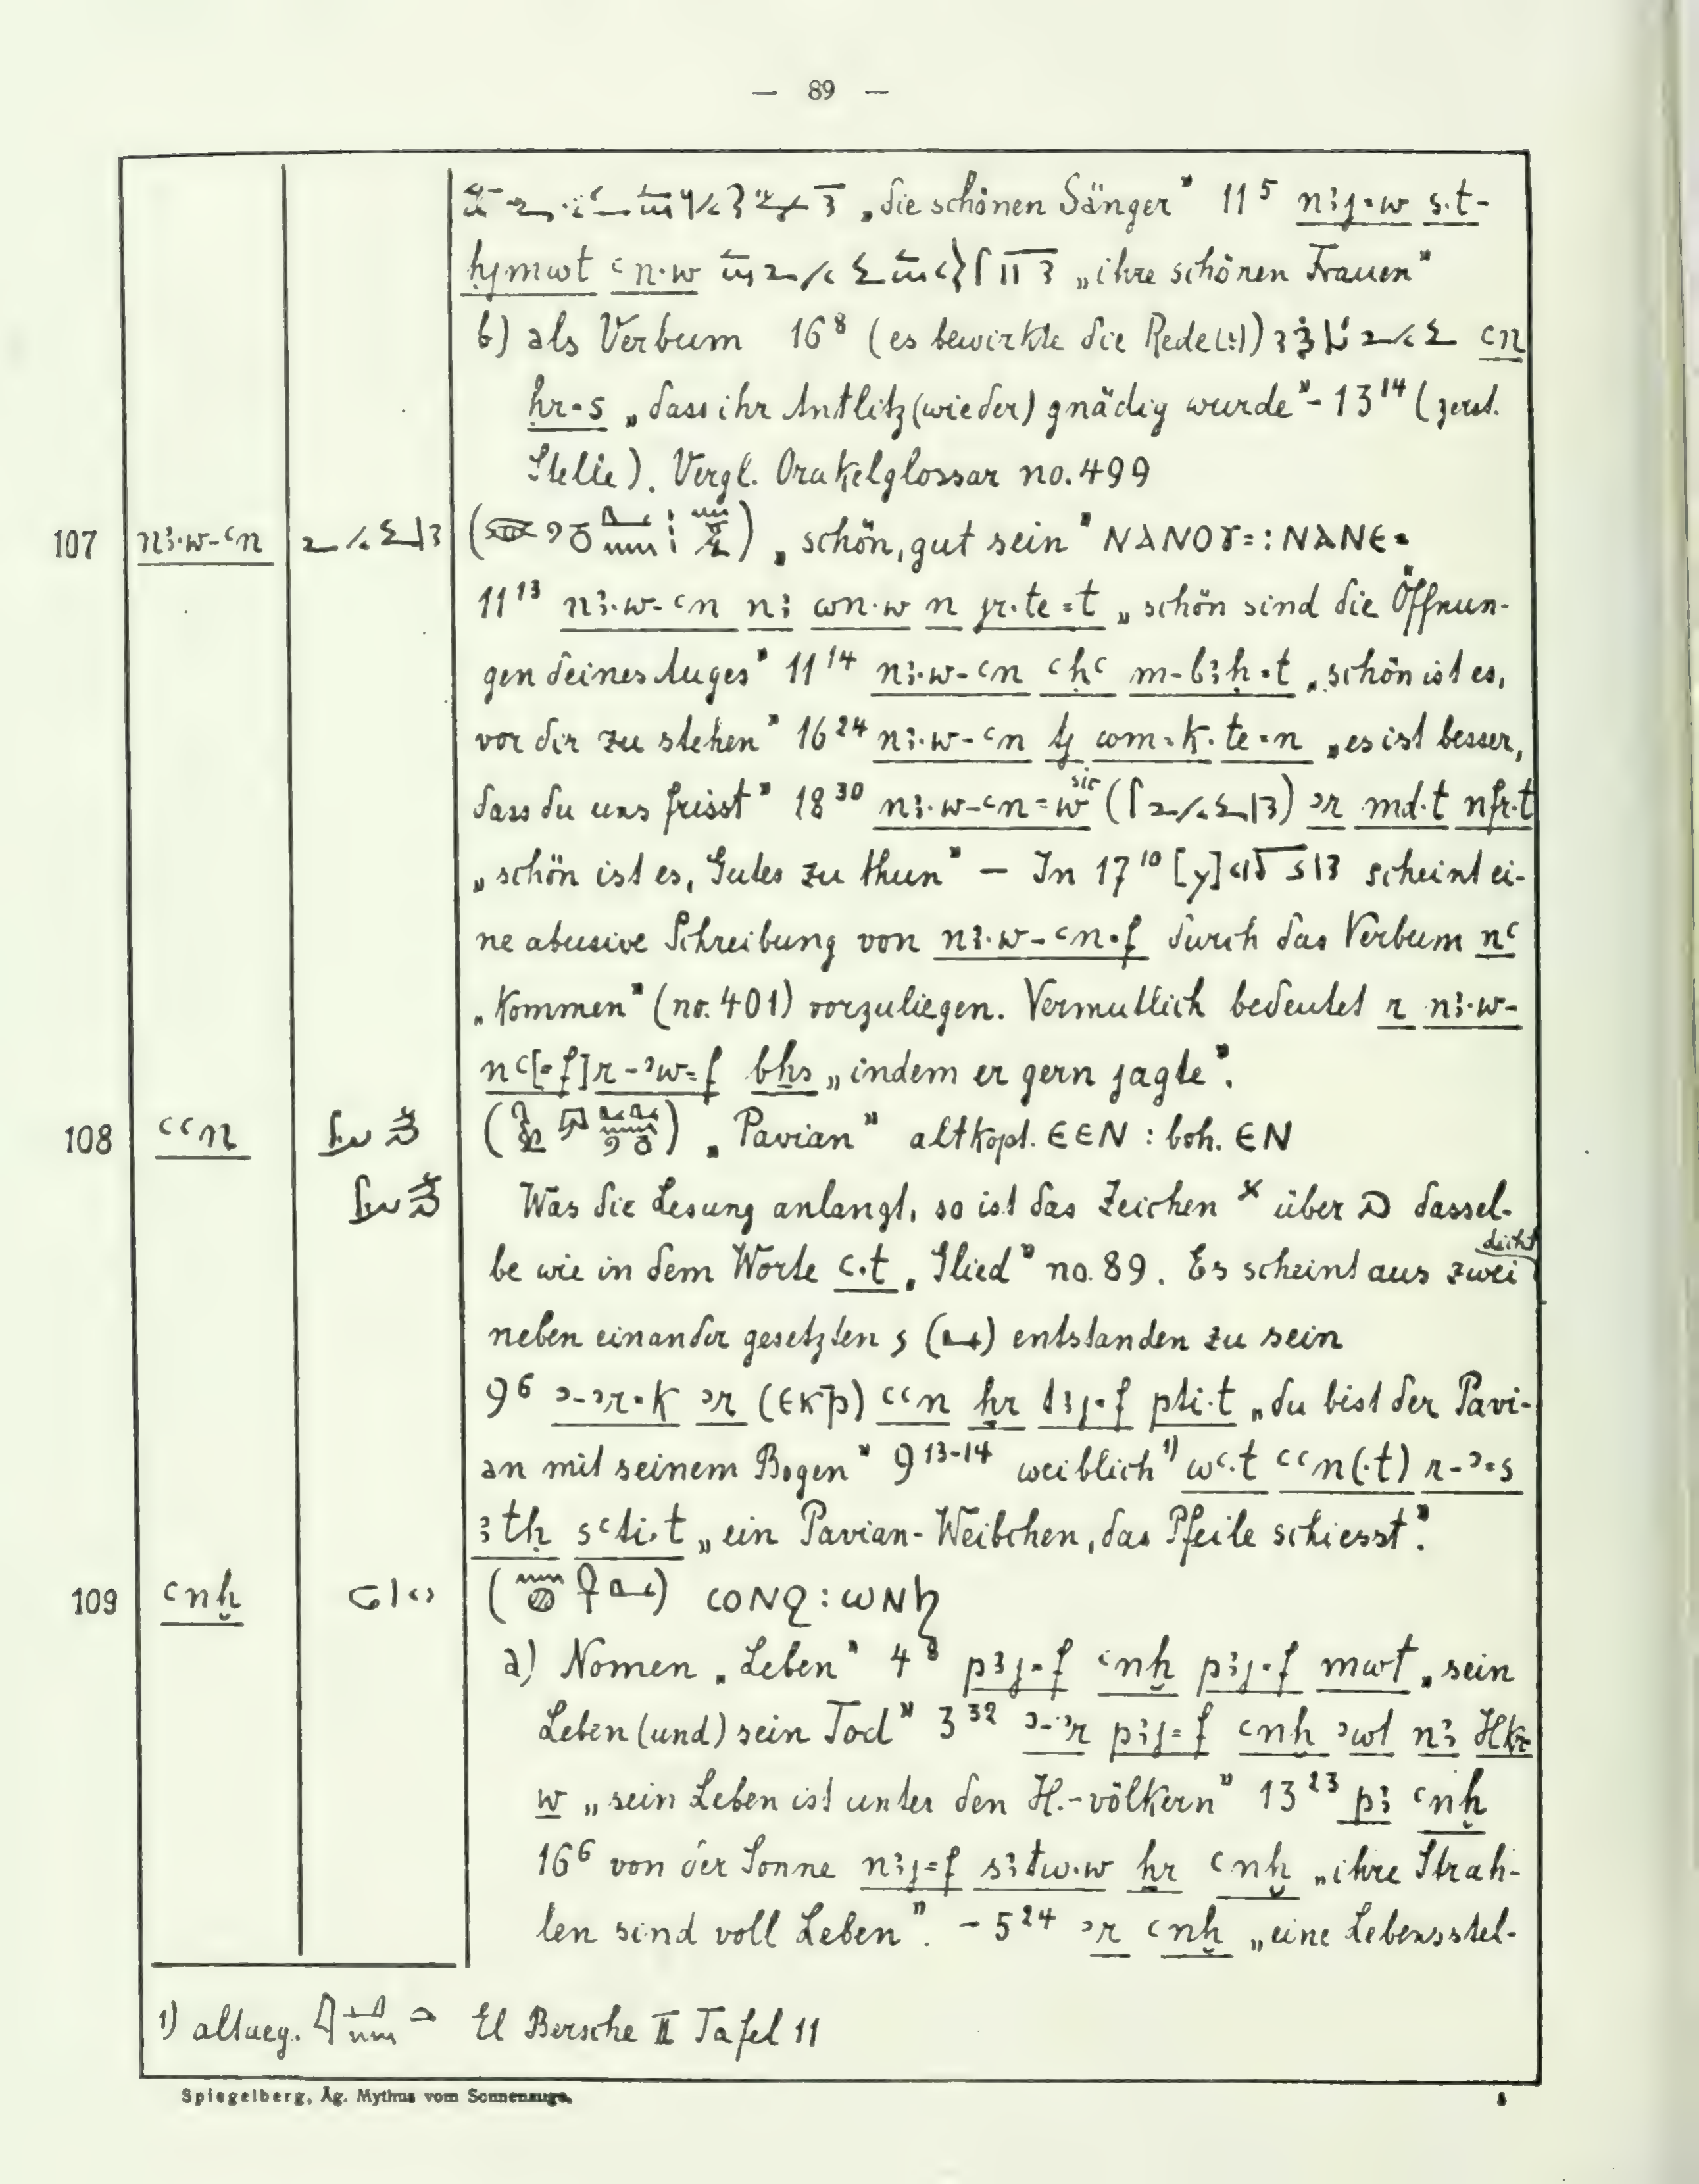 — 89 —
„die schönen Sänger" 11⁵ nꜣj⸗w s.t-
ḥjmwt ꜥn·w „ihre schönen Frauen"
b) als Verbum 16⁸ (es bewirkte die Rede(?)) ꜥn
ḥr⸗s „dass ihr Antlitz (wieder) gnädig wurde" - 13¹⁴ (zerst.
Stelle). Vergl. Orakelglossar no. 499
107 nꜣ·w-ꜥn „schön, gut sein" ⲚⲀⲚⲞⲨ⸗ : ⲚⲀⲚⲈ⸗
11¹³ nꜣ·w-ꜥn nꜣ wn·w n jr·te⸗t „schön sind die Öffnun-
gen deines Auges" 11¹⁴ nꜣ·w-ꜥn ꜥḥꜥ m-bꜣḥ⸗t „schön ist es,
vor dir zu stehen" 16²⁴ nꜣ·w-ꜥn tj wm⸗k·te⸗n „es ist besser,
dass du uns frisst" 18³⁰ nꜣ·w-ꜥn⸗w sic ( ) ꜣr md·t nfr·t
„schön ist es, Gutes zu thun" — In 17¹⁰ [y] scheint ei-
ne abusive Schreibung von nꜣ·w-ꜥn⸗f durch das Verbum nꜥ
„kommen" (no. 401) vorzuliegen. Vermutlich bedeutet r nꜣ·w-
nꜥ[⸗f] r-ꜣw⸗f bḥs „indem er gern jagte".
108 ꜥꜥn „Pavian" altkopt. ⲈⲈⲚ : boh. ⲈⲚ
Was die Lesung anlangt, so ist das Zeichen × über dassel-
be wie in dem Worte ꜥ·t „Glied" no. 89. Es scheint aus zwei dicht
neben einander gesetzten entstanden zu sein
9⁶ ꜣ-ꜣr⸗k ꜣr (ⲈⲔⲢ̄) ꜥꜥn ḥr tꜣj⸗f pti·t „du bist der Pavi-
an mit seinem Bogen" 9¹³⁻¹⁴ weiblich¹⁾ wꜥ·t ꜥꜥn(·t) r-ꜣ⸗s
ꜣtḥ sꜥti·t „ein Pavian-Weibchen, das Pfeile schiesst".
109 ꜥnḫ ⲰⲚϨ : ⲰⲚϦ
a) Nomen „Leben" 4⁸ pꜣj⸗f ꜥnḫ pꜣj⸗f mwt „sein
Leben (und) sein Tod" 3³² ꜣ-ꜣr pꜣj⸗f ꜥnḫ ꜣwt nꜣ Hkr
w „sein Leben ist unter den H.-völkern" 13²³ pꜣ ꜥnḫ
16⁶ von der Sonne nꜣj⸗f sꜣtw·w ḥr ꜥnḫ „ihre Strah-
len sind voll Leben". - 5²⁴ ꜣr ꜥnḫ „eine Lebensstel-
1) altaeg. El Bersche II Tafel 11
Spiegelberg, Äg. Mythus vom Sonnenauge.